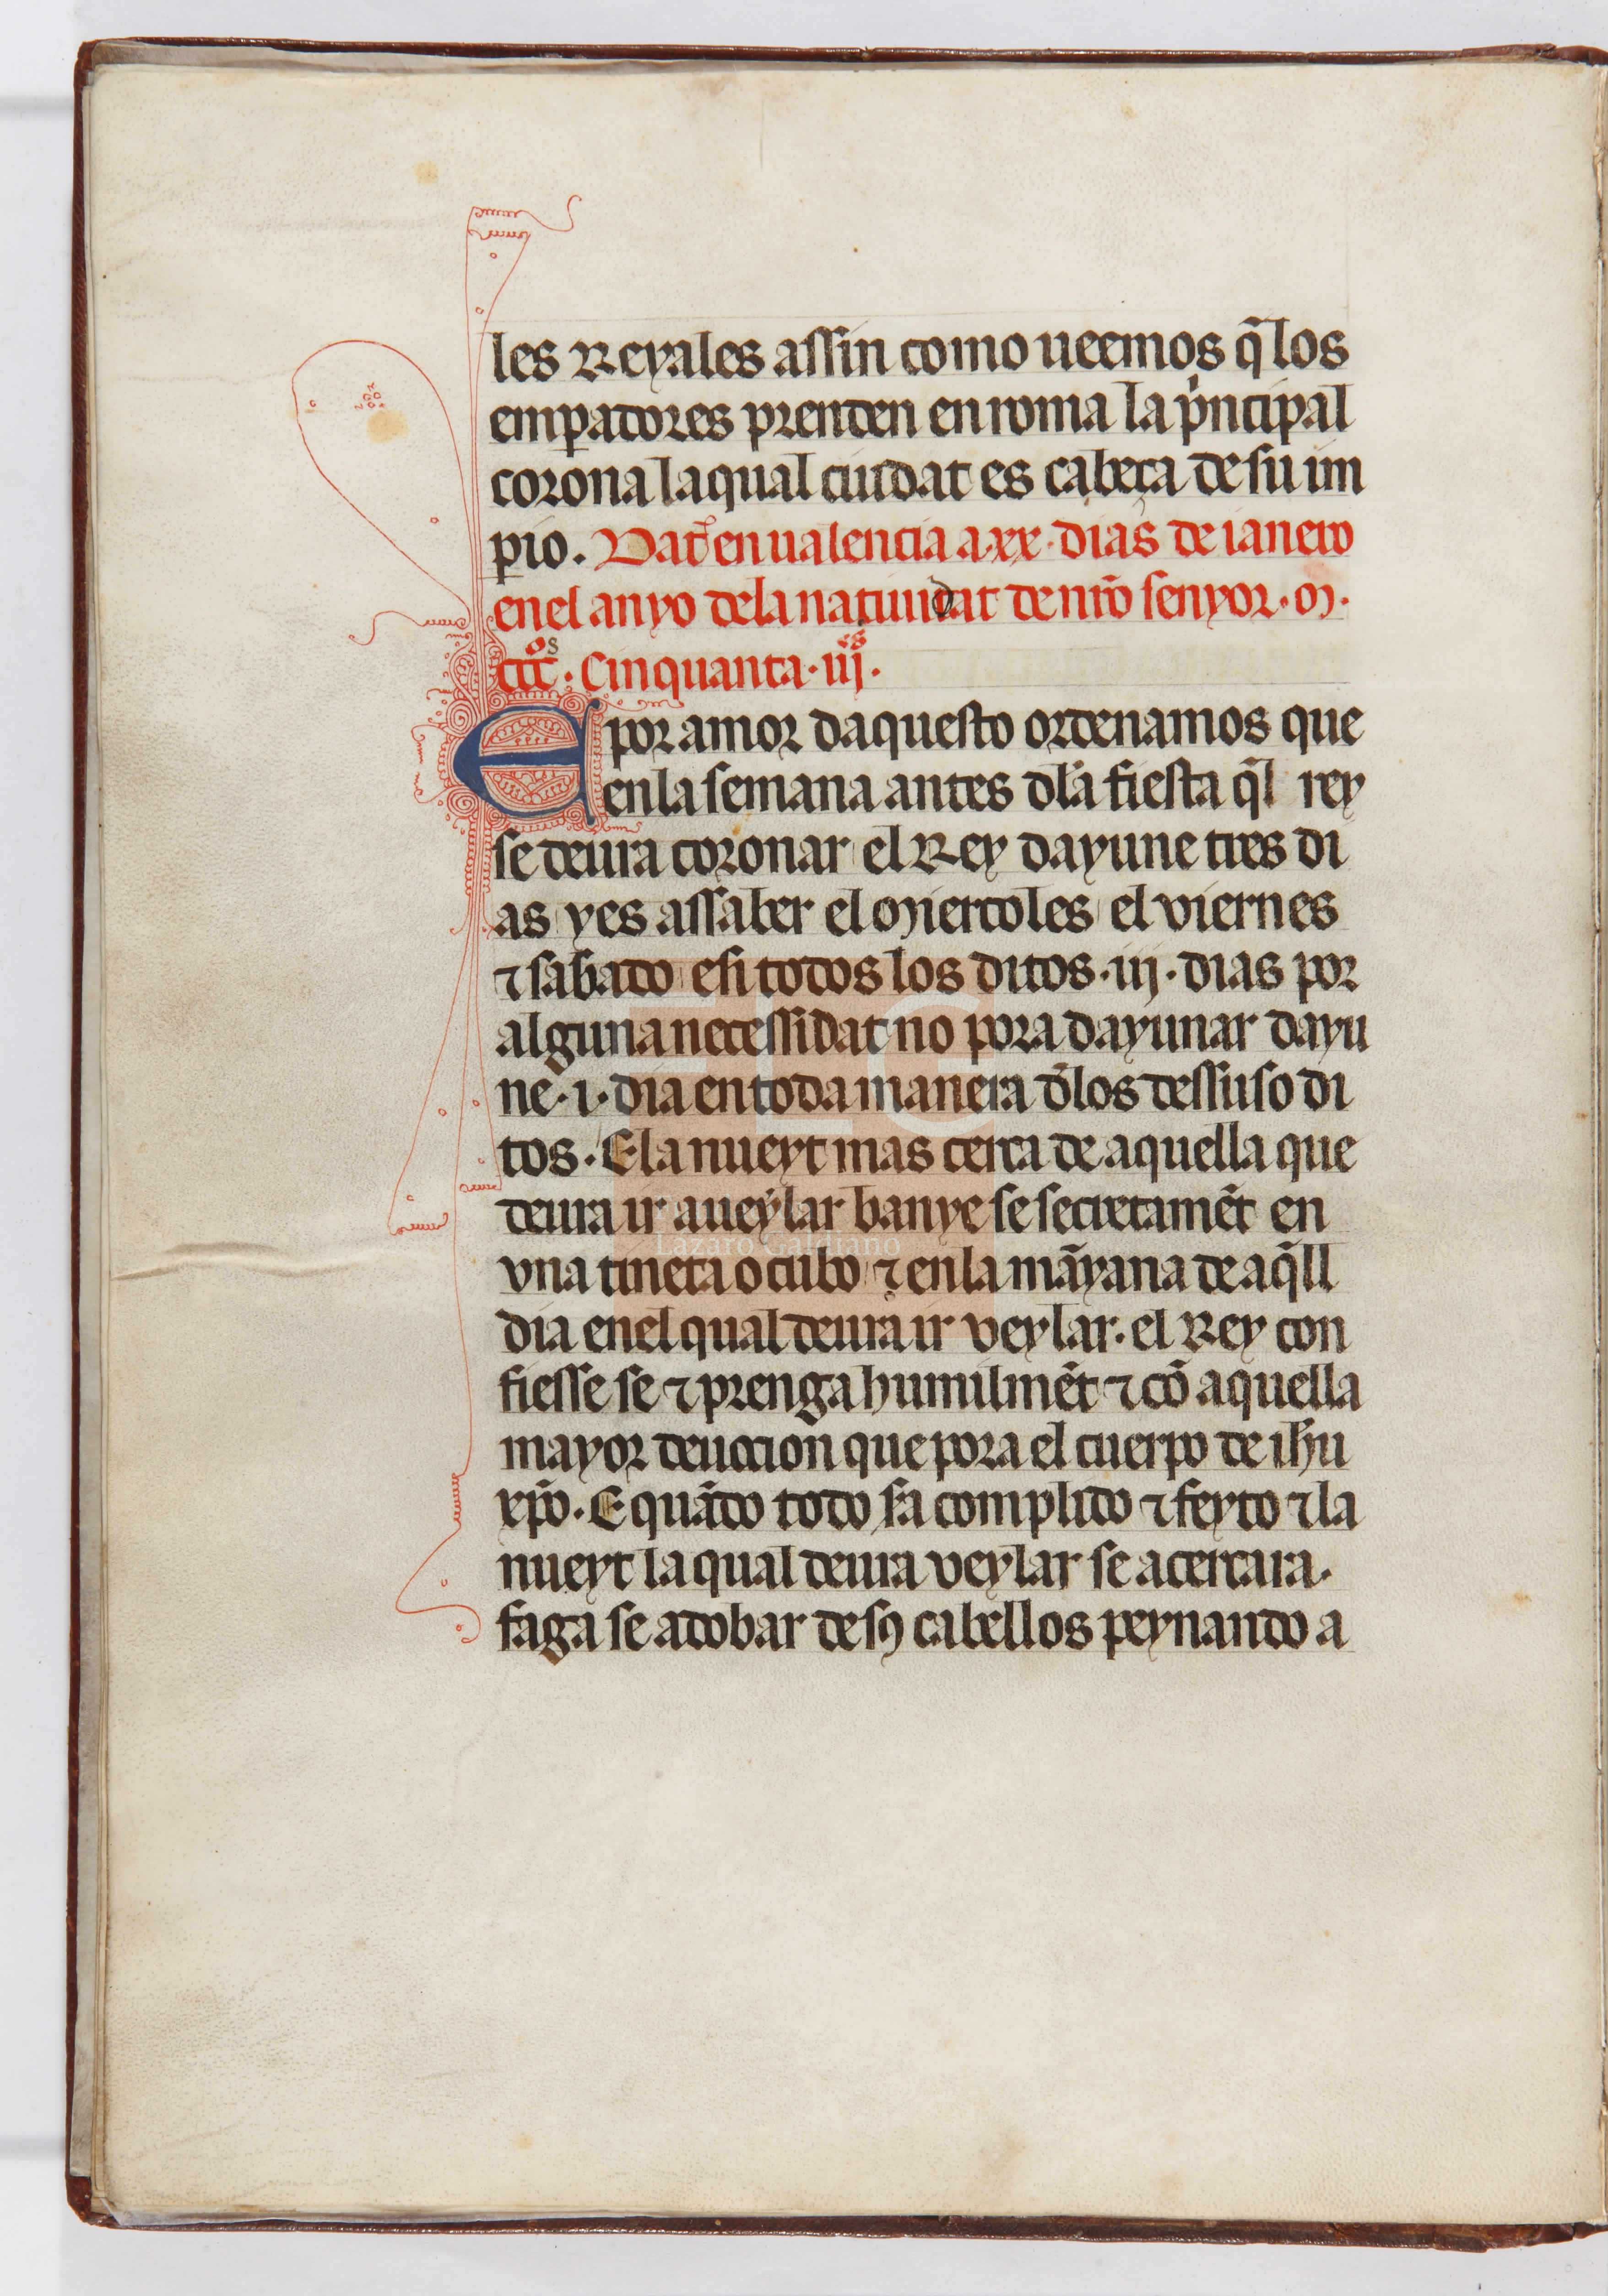 les Reyales assin como ueemos q̃ los
emꝑadores prenden en roma la pͥncipal
corona la qual ciudat es cabeça de su im
ꝑio. Dat̃ en ualencia a.xx. dias de ianero
en el anyo de la natiuidat de nr̃o senyor. M.
CCCos. Cinquanta.iijes.
E por amor daquesto ordenamos que
en la semana antes dl̃a fiesta q̃l rey
se deura coronar el Rey dayune tres di
as yes assaber el Miercoles el viernes
⁊ sabado e si todos los ditos .iij. dias por
alguna necessidat no pora dayunar dayu
ne .i. dia en toda manera d̃los dessuso di
tos. E la nueyt mas cerca de aquella que
deura ir a ueylar banye se secretamẽt en
vna tineta o cubo ⁊ en la mãyana de aq̃ll
dia en el qual deura ir veylar. el Rey con
fiesse se ⁊ prenga humilmẽt ⁊ cõ aquella
mayor deuocion que pora el cuerpo de ihũ
xp̃o. E quãdo todo sa̕ complido ⁊ feyto ⁊ la
nueyt la qual deura veylar se acercara.
faga se adobar de sꝯ cabellos peynando a
Lázaro Galdiano